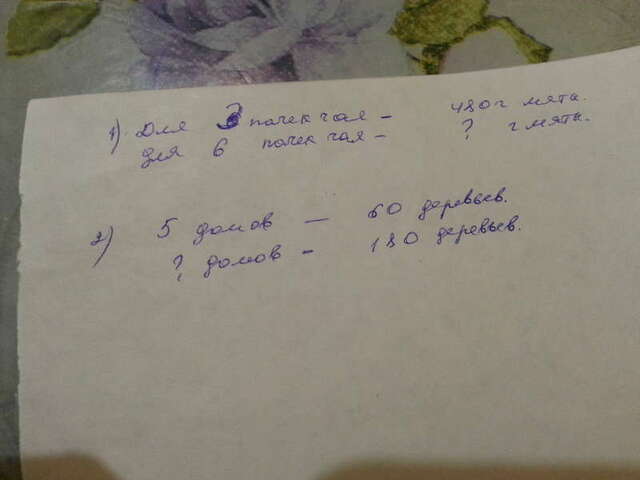 1) Для 3 пачек чая - 480 г мята.
для 6 пачек чая - ? г мята.
2) 5 домов — 60 деревьев.
? домов - 180 деревьев.